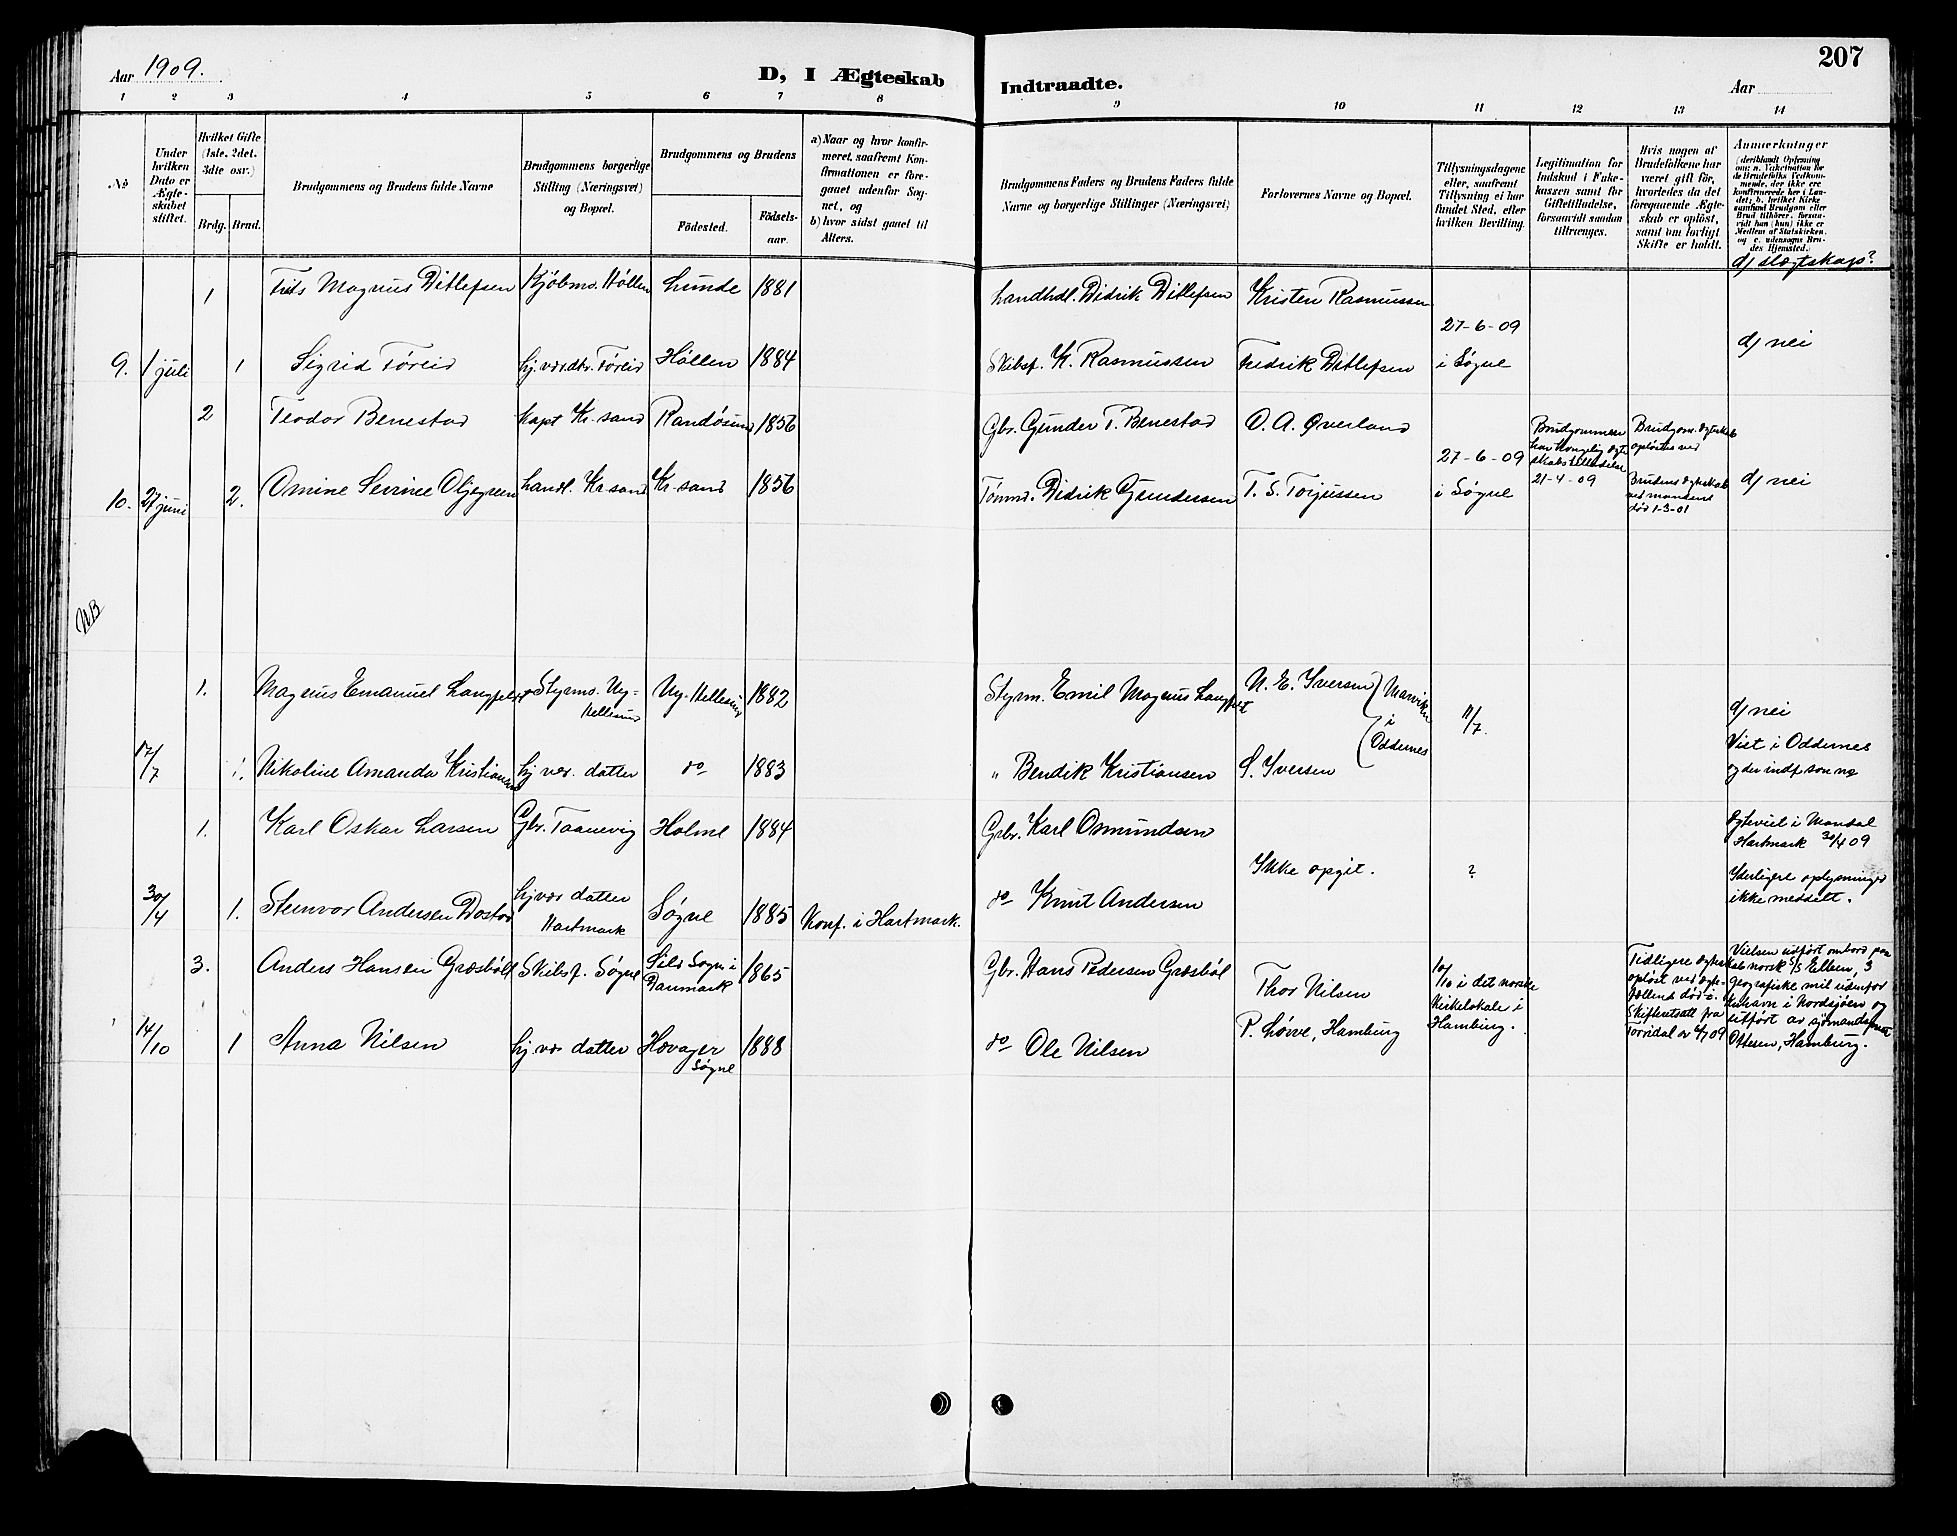 Aar 1909.
D, I Ægteskab
Indtraadte.
207
Aar
1 2 3 4 5 6 7 8 9 10 11 12 13 14
No
Under hvilken Dato er Ægteskabet stiftet.
Hvilket Gifte (1ste, 2det, 3dte osv.)
Brdg. Brud.
Brudgommens og Brudens fulde Navne
Brudgommens borgerlige Stilling (Næringsvei) og Bopæl.
Brudgommens og Brudens
Födested.
Födselsaar.
a) Naar og hvor konfirmeret, saafremt Konfirmationen er foregaaet udenfor Sognet, og
b) hvor sidst gaaet til Alters.
Brudgommens Faders og Brudens Faders fulde Navne og borgerlige Stillinger (Næringsvei)
Forlovernes Navne og Bopæl.
Tillysningsdagene eller, saafremt Tillysning ei har fundet Sted, efter hvilken Bevilling.
Legitimation for Indskud i Enkekassen samt for Giftetilladelse, forsaavidt saadan tiltrænges.
Hvis nogen af Brudefolkene har været gift før, hvorledes da det foregaaende Ægteskab er opløst, samt om lovligt Skifte er holdt.
Anmerkninger
(deriblandt Oplysning om: a. Vakcination for de Brudefolks Vedkommende, der ikke ere konfirmerede her i Landet; b. hvilket Kirkesamfund Brudgom eller Brud tilhører, forsaavidt han (hun) ikke er Medlem af Statskirken, og c. udensogns Brudes Hjemsted.)
d/ slegtskap?
1 Frits Magnus Ditlefsen Kjøbm. Høllen Lunde 1881 Landhdl. Didrik Ditlefsen Kristen Rasmussen
27-6-09
9. 1 juli 1 Sigrid Føreid hj. vær. dtr. Føreid Høllen 1884 Skibsf. K. Rasmussen Fredrik Ditlefsen i Søgne d/ nei
2 Teodor Benestad Kapt Kr. sand Randøsund 1856 Gbr. Gunder T. Benestad O. A. Øverland
27-6-09
Brudgommen har kongelig egteskabstilladelse 21-4-09
Brudgom. egteskab opløstes ved
10. 27 juni 2. Omine Sevrine Oljegren handl. Kr. sand Kr. sand 1856 Tømmd. Didrik Gundersen T. S. Torjussen i Søgne
Brudens egteskab ved mandens død 1-3-01
d/ nei
NB
1. Magnus Emanuel Langfeldt Styrmd. Ny-Hellesund Ny-Hellesund 1882 Styrm. Emil Magnus Langfeldt N. E. Iversen
Narviken i Oddernes
11/7.
d/ nei
Viet i Oddernes
og der indf. som no
17/7 1. Nikoline Amanda Kristiansen hj vær. datter do 1883 " Bendik Kristiansen S. Iversen
1. Karl Oskar Larsen Gbr. Taanevig Holme 1884 Gbr. Karl Osmundsen
Ikke opgit. ?
Egteviet i Mandal
Hartmark 30/4 09
Yderligere oplysninger
ikke meddelt.
30/4 1. Steinvor Andersen Dostad hj vær datter Hartmark Søgne 1885 Konf. i Hartmark. do Knut Andersen
3. Anders Hansen Græsbøll Skibsf. Søgne Sild Sogn i Danmark 1865 Gbr. Hans Pedersen Græsbøl
Thor Nilsen
P. Lørve, Hamburg
10/10 i det norske
Kirkelokale i
Hamburg.
Tidligere egteskab
opløst ved egtefællens død.
Skifteattest fra
Torridal av 6/7 09
Vielsen utført ombord paa
norsk S/S Elben, 3
geografiske mil utenfor
Kuxhavn i Nordsjøen og
utført av sjømandsprest
Ottesen, Hamburg.
14/10 1 Anna Nilsen hj vær datter Høvager Søgne 1888 do Ole Nilsen